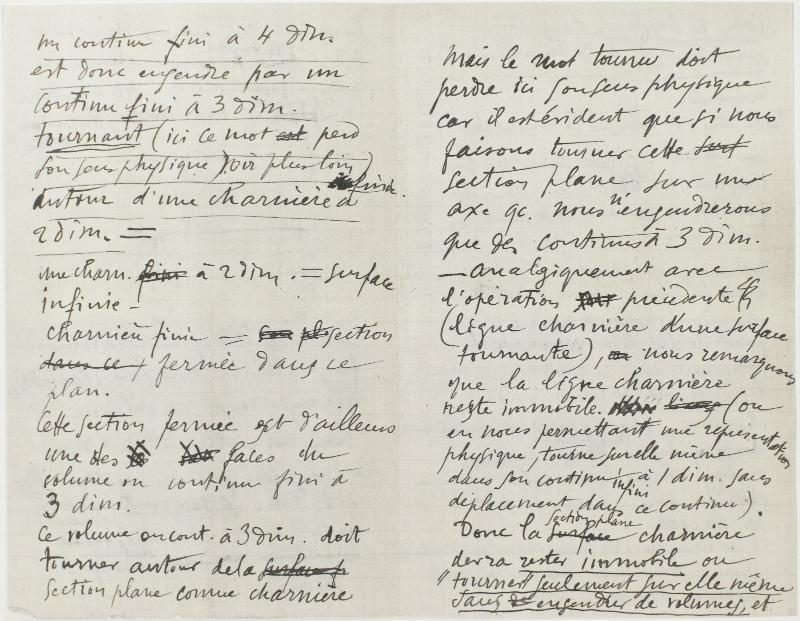 un continu fini à 4 dim.
est donc engendré par un
continu fini à 3 dim.
tournant (ici ce mot est perd
son sens physique) voir plus loin)
autour d'une charnière à
finie.
2 dim. =
une charn. finie à 2 dim. = surface
infinie –
charnière finie = section
dans ce fermée dans ce
plan.
Cette section fermée est d'ailleurs
une des faces du
volume ou continu fini à
3 dim.
Ce volume ou cont. à 3 dim. doit
tourner autour de la surface
section plane comme charnière
Mais le mot tourner doit
perdre ici son sens physique
car il est évident que si nous
faisons tourner cette surf
section plane sur un
axe qc. nous n'engendrerons
que des continus à 3 dim.
– analgiquement avec
l'opération précédente
(ligne charnière d'une surface
tournante), nous remarquons
que la ligne charnière
reste immobile. ligne (ou
en nous permettant une représentation
physique, tourne sur elle même
dans son continu infini à 1 dim. sans
déplacement dans ce continu).
Donc la surface section plane charnière
devra rester immobile ou
"tourner" seulement sur elle même
sans de engendrer de volumes, et